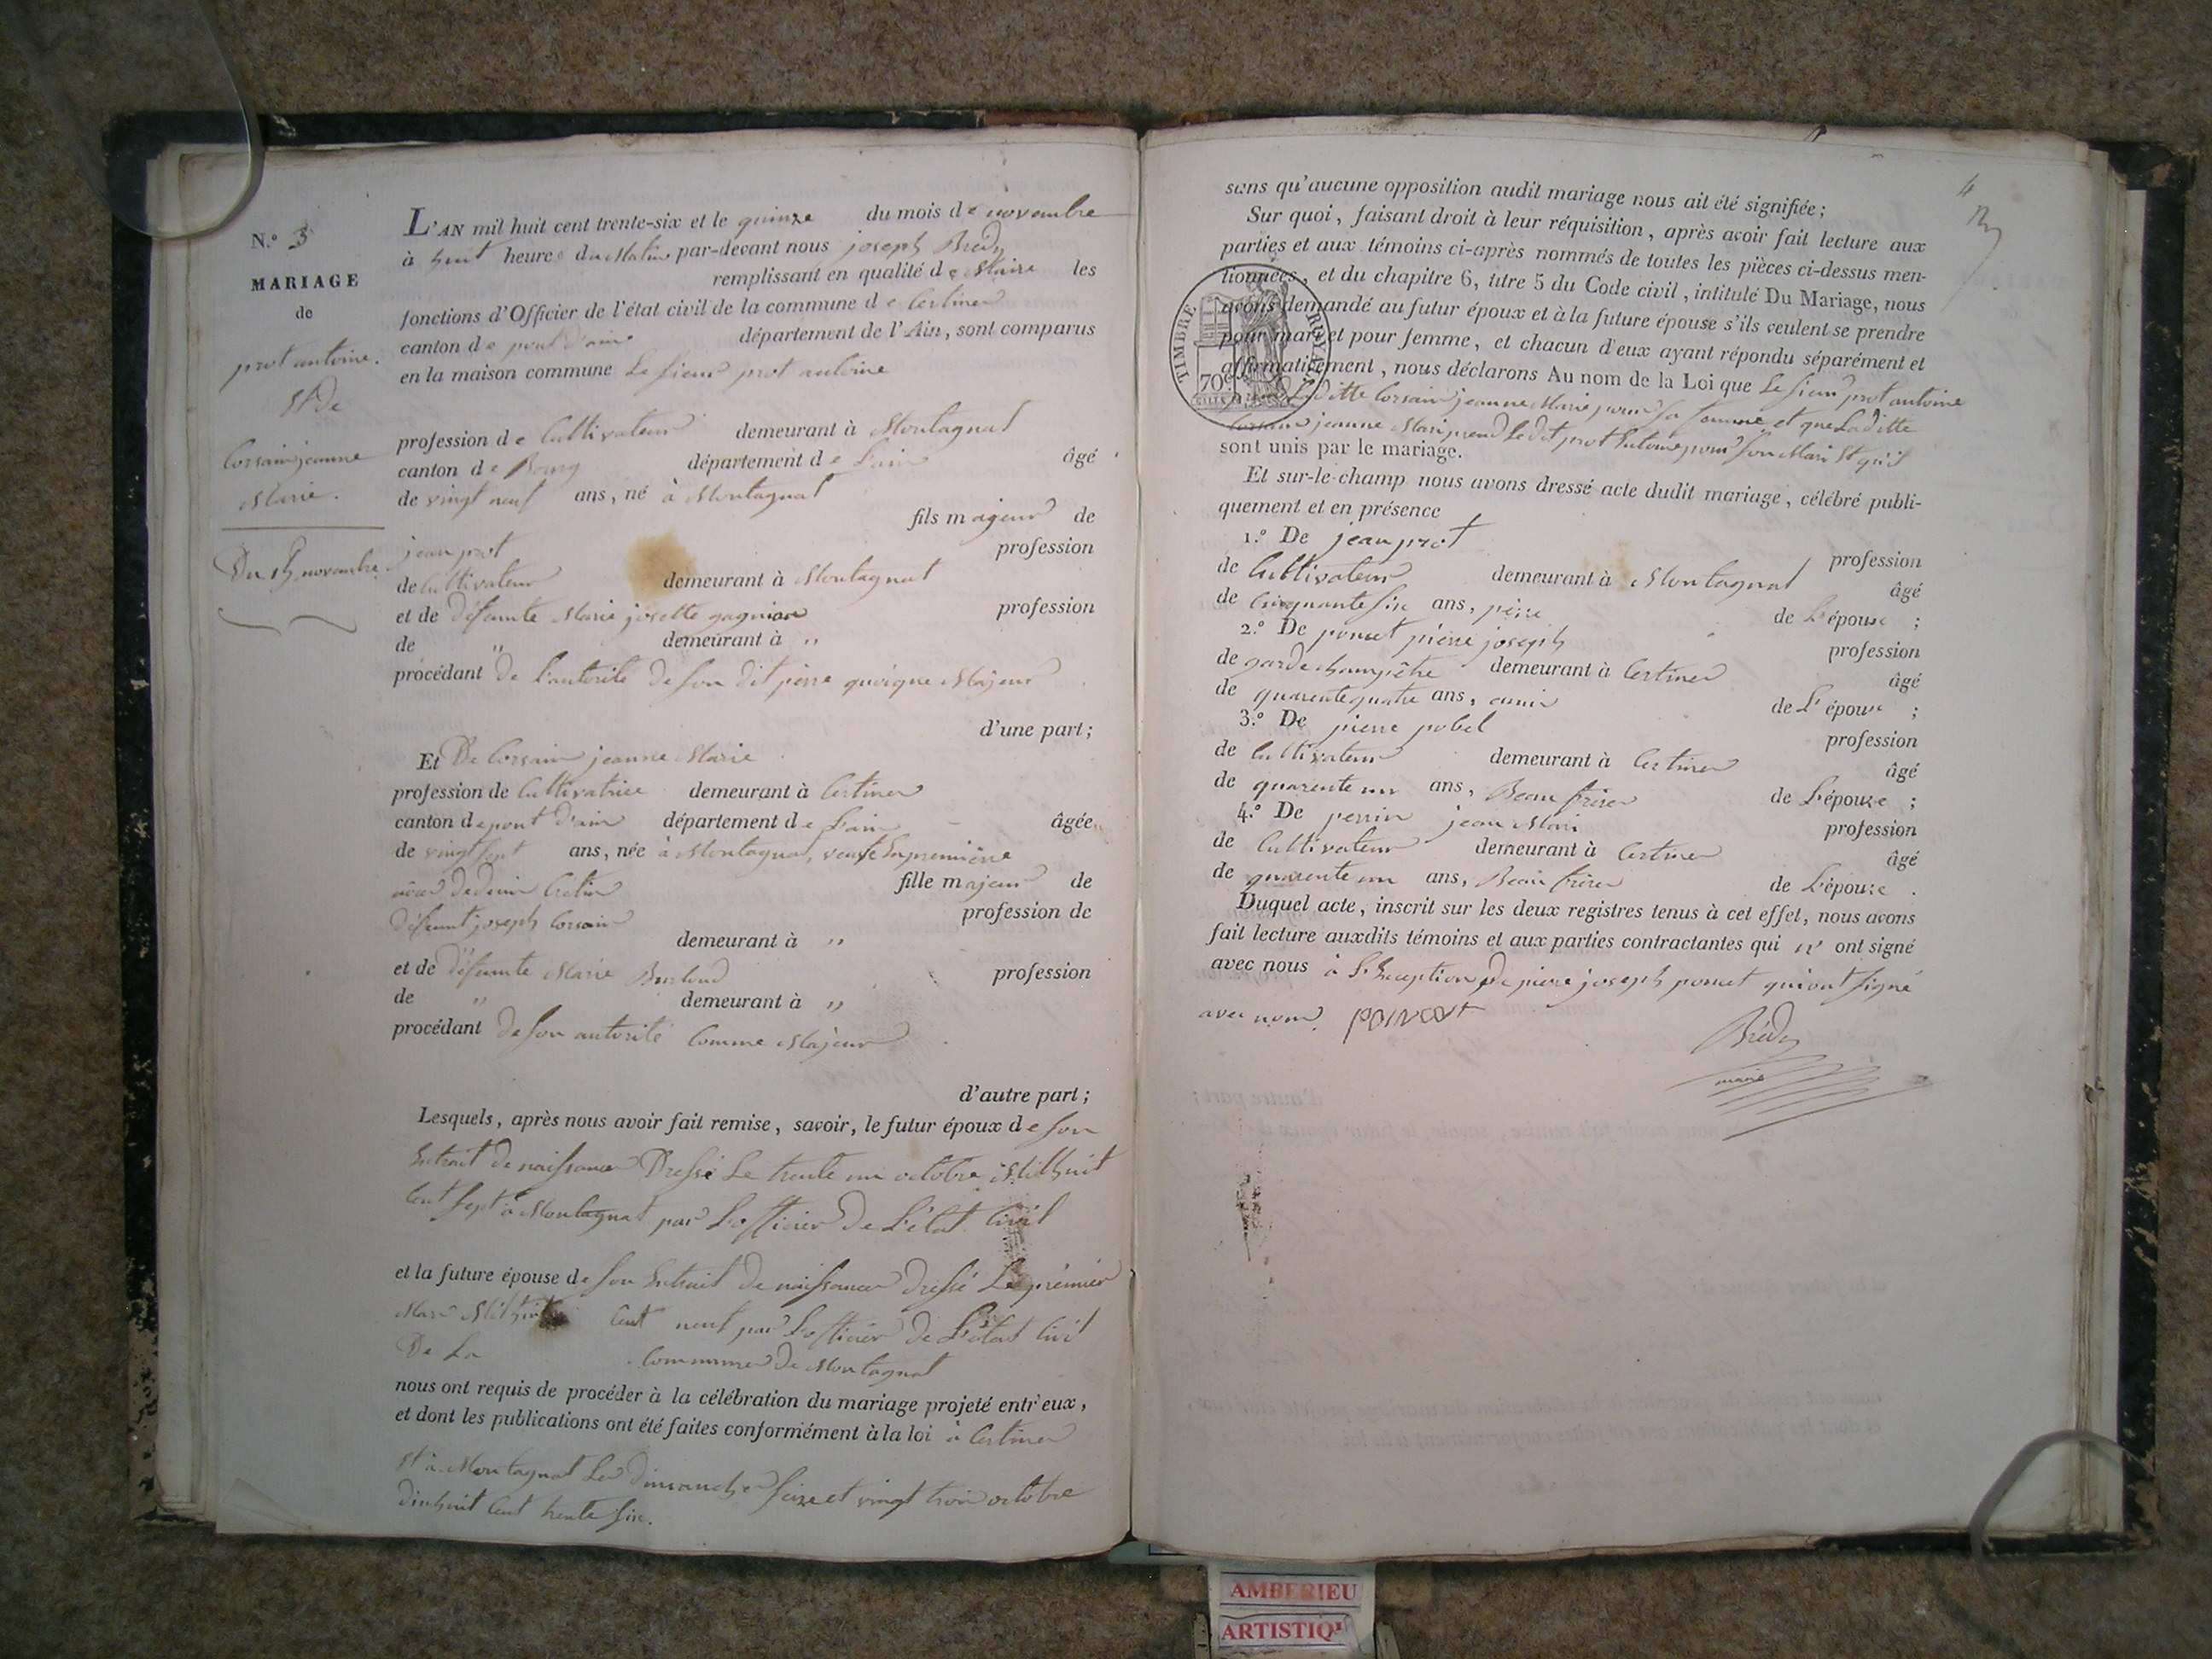 N.° 3
MARIAGE
de
prot antoine.
Et De
Corsain jeanne
Marie.
Du 15 novembre
L'AN mil huit cent trente-six et le quinze du mois de novembre
à huit heures du Matin par-devant nous joseph Brédy
remplissant en qualité de Maire les
fonctions d'Officier de l'état civil de la commune de Certines
canton de pont d'ain département de l'Ain, sont comparus
en la maison commune Le sieur prot antoine
profession de Cultivateur demeurant à Montagnat
canton de Bourg département de L'ain âgé
de vingt neuf ans, né à Montagnat
fils majeur de
jean prot profession
de Cultivateur demeurant à Montagnat
et de défeunte Marie josette gagnion profession
de " demeurant à "
procédant de L'autorité De son dit père quoique Majeur
d'une part;
Et De Corsain jeanne Marie
profession de Cultivatrice demeurant à Certines
canton de pont d'ain département de L'ain âgée
de vingt sept ans, née à Montagnat, veuve en première
fille majeur de
défeunt joseph Corsain profession de
" demeurant à "
et de défeunte Marie profession
de " demeurant à "
procédant de son autorité Comme Majeur
d'autre part;
Lesquels, après nous avoir fait remise, savoir, le futur époux de son
Extrait de naissance Dressé Le trente un octobre Mil huit
Cent sept à Montagnat par L'officier De L'état Civil
et la future épouse de son Extrait de naissance dressé Le prémier
Mars Mil huit Cent neuf par L'officier de L'état Civil
De La Commune De Montagnat
nous ont requis de procéder à la célébration du mariage projeté entr'eux,
et dont les publications ont été faites conformément à la loi à Certines
Et à Montagnat Les Dimanches seize et vingt trois octobre
dixhuit Cent trente six.
4
sans qu'aucune opposition audit mariage nous ait été signifiée;
Sur quoi, faisant droit à leur réquisition, après avoir fait lecture aux
parties et aux témoins ci-après nommés de toutes les pièces ci-dessus men-
tionnées, et du chapitre 6, titre 5 du Code civil, intitulé Du Mariage, nous
avons demandé au futur époux et à la future épouse s'ils veulent se prendre
pour mari et pour femme, et chacun d'eux ayant répondu séparément et
affirmativement, nous déclarons Au nom de la Loi que Le sieur prot antoine
Laditte Corsain jeanne Marie pour sa femme et que Laditte
Corsain jeanne Mari prend Ledit prot Antoine pour son Mari Et qu'il
sont unis par le mariage.
TIMBRE ROYAL
70c
Et sur-le-champ nous avons dressé acte dudit mariage, célébré publi-
quement et en présence
1.° De jean prot profession
de Cultivateur demeurant à Montagnat âgé
de Cinquante six ans, père de L'époux ;
2.° De poncet pierre joseph profession
de garde champêtre demeurant à Certines âgé
de quarente quatre ans, amis de L'époux ;
3.° De pierre pobel profession
de Cultivateur demeurant à Certines âgé
de quarente un ans, Beau frère de L'épouse ;
4.° De perrin jean Mari profession
de Cultivateur demeurant à Certines âgé
de quarente un ans, Beau frère de L'épouse .
Duquel acte, inscrit sur les deux registres tenus à cet effet, nous avons
fait lecture auxdits témoins et aux parties contractantes qui n' ont signé
avec nous à L'Exception De pierre joseph poncet qui ont signé
avec nous. poncet
Brédy
maire
AMBERIEU
ARTISTIQ